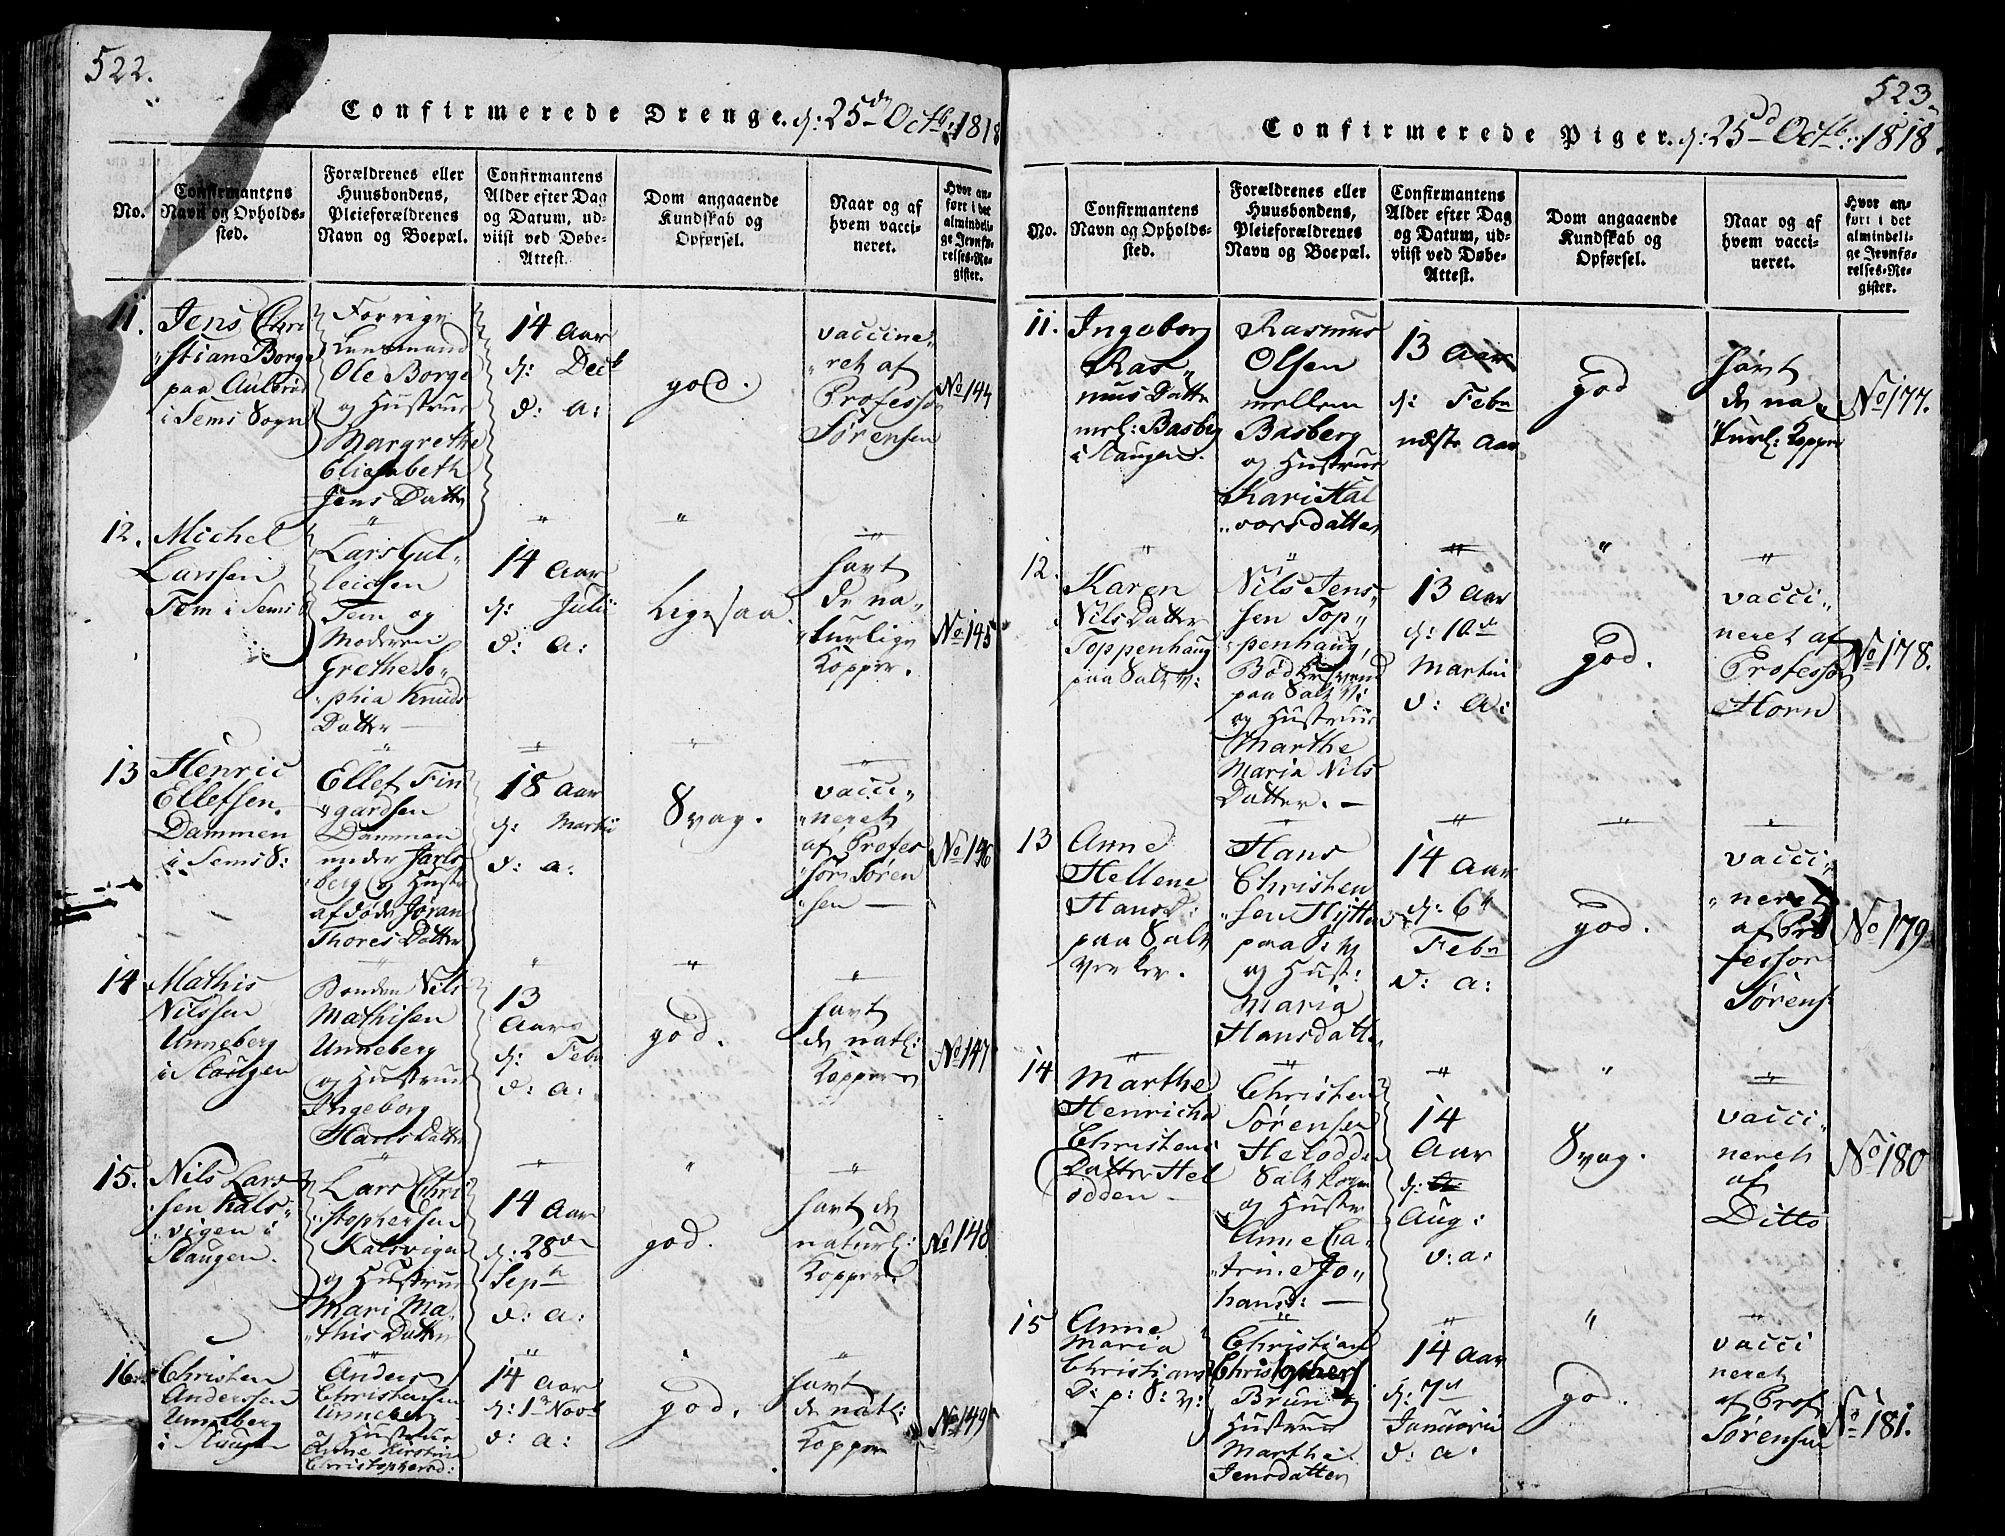 522.
Confirmerede Drenge. d: 25de Octb: 1818
No.
Confirmantens
Navn og Opholds-
sted.
Forældrenes eller
Huusbondens,
Pleieforældrenes
Navn og Boepæl.
Confirmantens
Alder efter Dag
og Datum, ud-
viist ved Døbe-
Attest.
Dom angaaende
Kundskab og
Opførsel.
Naar og af
hvem vacci-
neret.
Hvor an-
ført i det
almindeli-
ge Jevnfø-
relses-Re-
gister.
11.
Jens Chri
„stian Borge
paa Aulerød
i Sems Sogn
Forrige
Lensmand
Ole Borge
og Hustrue
Margrethe
Elisabeth
Jens Datter
14 Aar
d: Decb
d: a:
god.
vaccine„
„ret af
Professor
Sørensen
No 144
12.
Michel
Larssen
Tem i Sems S
Lars Gul„
„leichsen
Tem og
Moderen
Grethe So„
„phia Knuds
Datter —
14 Aar
d: Julii
d: a:
Ligesaa.
havt
de na„
„turlige
Kopper.
No 145
13
Henric
Ellefsen
Dammen
i Sems S:
Ellef Fin
„gardsen
Dammen
under Jarls
„berg og Hustr
afdøde Jøran
Thores Datter
18 Aar
d: Martii
d: a:
Svag.
vacci„
„neret
af Profes
„sor Søren
„sen —
No 146
14.
Mathis
Nilssen
Unneberg
i Slaugen
Bonden Nils
Mathisen
Unneberg
og Hustrue
Ingeborg
Hans Datter
13
Aar
d: Febr
d: a:
god.
havt
de natl:
Kopper
No 147
15.
Nils Lars
„sen Kals„
„vigen i
Slaugen.
Lars Chri
„stophersen
Kalsvigen
og Hustrue
Mari Ma„
„this Datter
14 Aar
d: 28de
Septb
d: a:
god.
havt de
naturl:
Kopper.
No 148
16.
Christen
Anderssen
Unneberg
i Slaugen
Anders
Christensen
Unneberg
og Hustrue
Anne Kirstine
Christophersd:
14 Aar
d: 1te Novb
d: a:
god.
havt
de natl:
Kopper
No 149
523.
Confirmerede Piger. d: 25de Octb: 1818.
No.
Confirmantens
Navn og Opholds-
sted.
Forældrenes eller
Huusbondens,
Pleieforældrenes
Navn og Boepæl.
Confirmantens
Alder efter Dag
og Datum, ud-
viist ved Døbe-
Attest.
Dom angaaende
Kundskab og
Opførsel.
Naar og af
hvem vacci-
neret.
Hvor an-
ført i det
almindeli-
ge Jevnfø-
relses-Re-
gister.
11.
Ingeborg
Ras„
mus Datter
mel: Basberg
i Slaugen.
Rasmus
Olsen
mellem
Basberg
og Hustrue
Kari Hal
„vorsdatter
13 Aar
d: Febr
næste Aar
god
havt
de na
„turl: Kopper
No 177.
12.
Karen
Nils Datter
Toppenhaug
paa Salt V:
Nils Jens„
sen Top„
„penhaug,
Bødkersvend
paa Salt V:
og Hustrue
Marthe
Maria Nils
Datter. —
13 Aar
d: 10de
Martii
d: a:
god.
vacci„
neret af
Professor
Horn
No 178.
13
Anne
Hellene
Hansd:
paa Salt
verket.
Hans
Christen
„sen Hytte
paa S: V
og Hust:
Maria
Hansdatter
14 Aar
d: 6te
Febr
d: a:
god.
vacci„
„neret
af Pro
fessor
Sørens:
No 179
14
Marthe
Henricha
Christens
Datter Hel
odden —
Christen
Sørensen
Helodden
Salt
og Hustr
Anne Ca„
„trine Jo„
hansd: —
14
Aar
d:
Aug:
d: a:
Svag.
vacci„
neret
af
Ditto
No 180
15
Anne
Maria
Christians
D: p: S: V:
Christian
Christophers
Brun og
Hustrue
Marthe
Jensdatter
14 Aar
d: 7de
Januarii
d: a
god.
vacci
neret
af Prof
Sørensen
No 181.